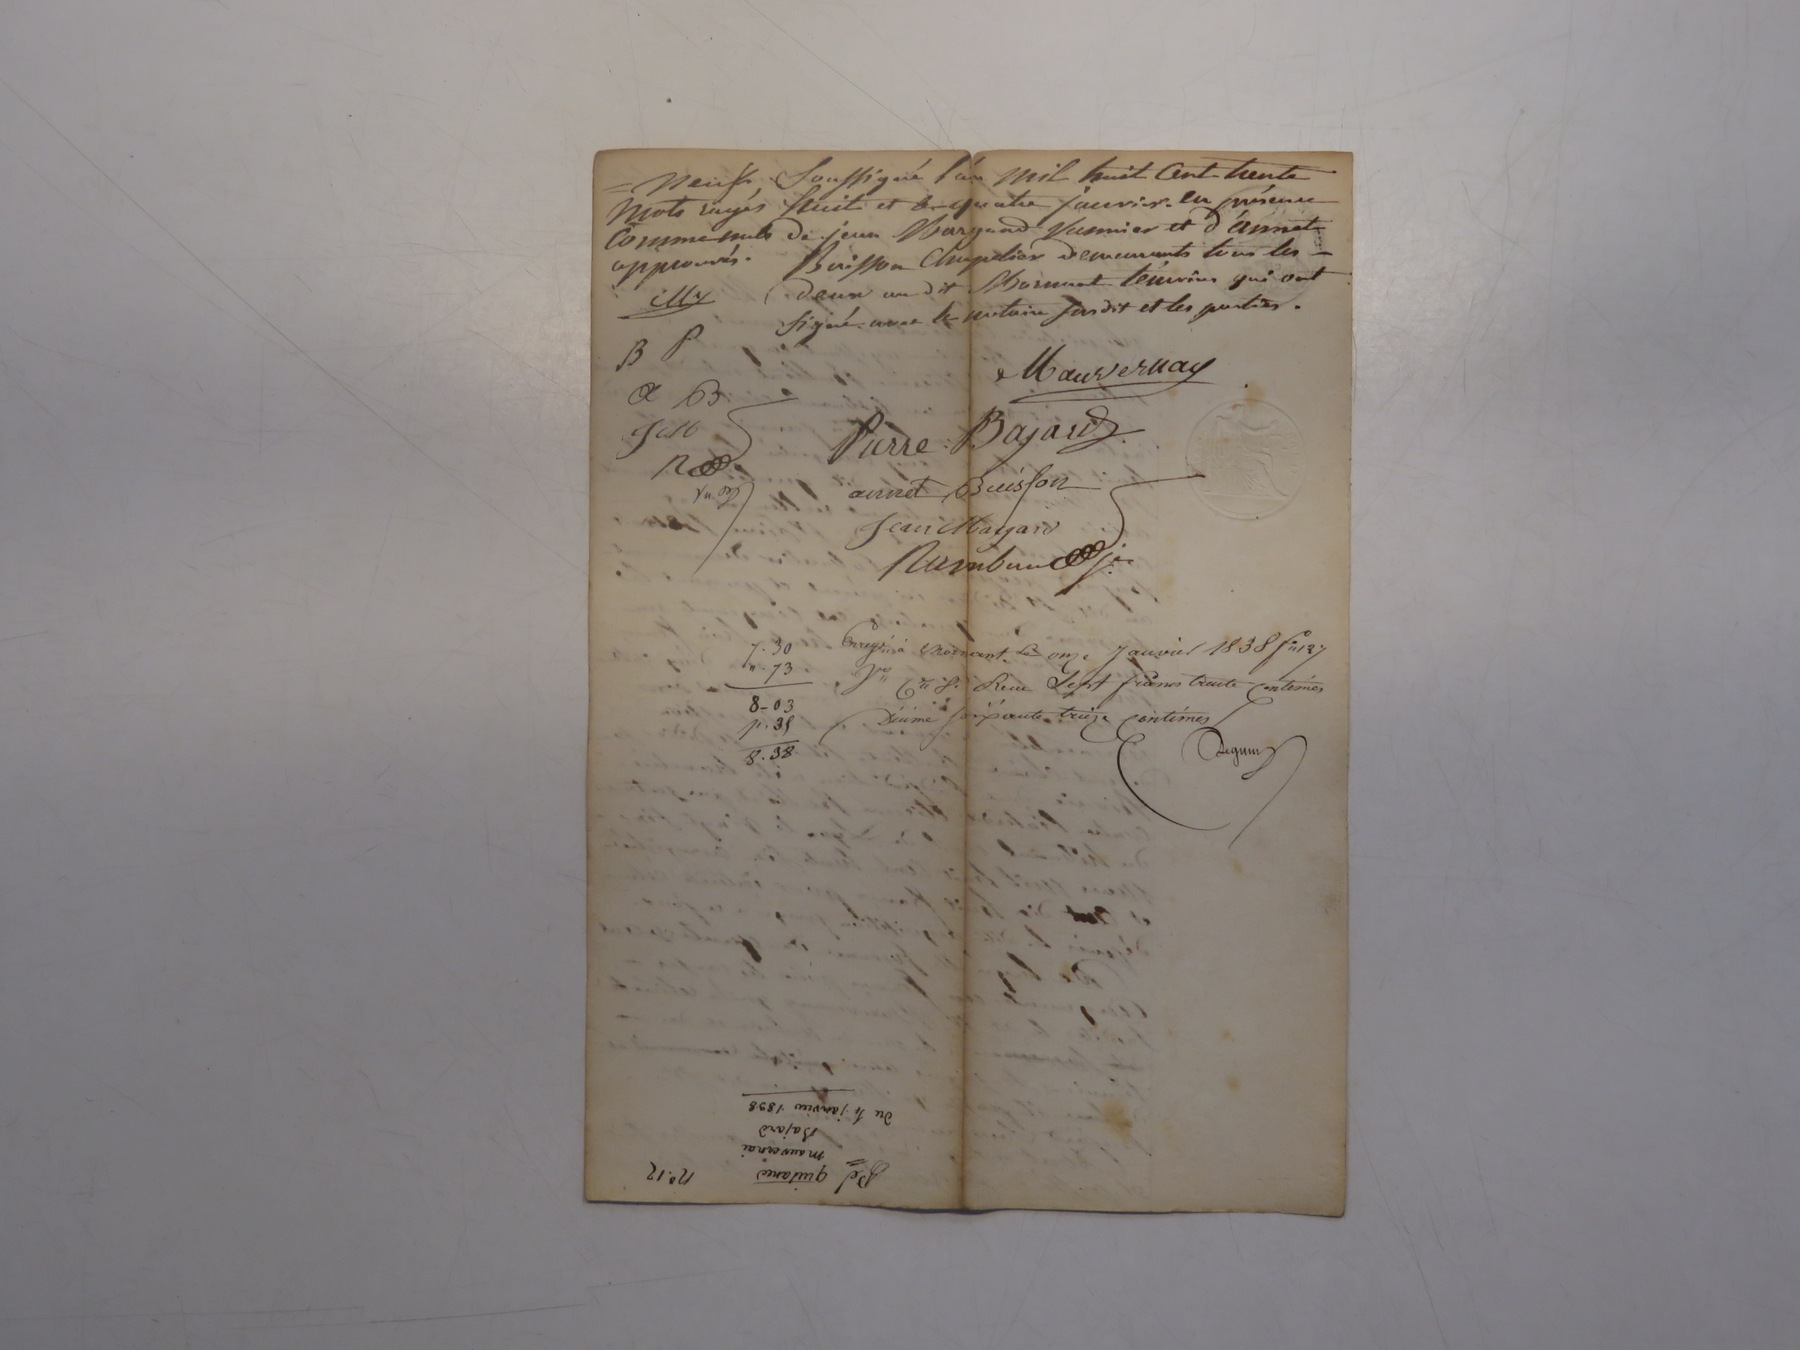 Neuf Soussigné l'an mil huit Cent trente
Mots rayés huit et le quatre janvier. en présence
Comme nuls de jean Margand et d'annet
approuvés. Buisson Chapelier demeurants tous les
deux au dit Mornant témoins qui ont
signé avec le notaire susdit et les parties.
My
B P
a B
J M
R
Mauvernay
Pierre Bajard
annet Buisson
Jean Margard
Rambaud
7.30
".73
8-03
".35
8.38
Enregé à Mornant le onze Janvier 1838 fo 127
Reçu Sept francs trente Centimes
Décime soixante treize Centimes
no. 12
quitance
mauvernai
Bajard
du 4 janvier 1838